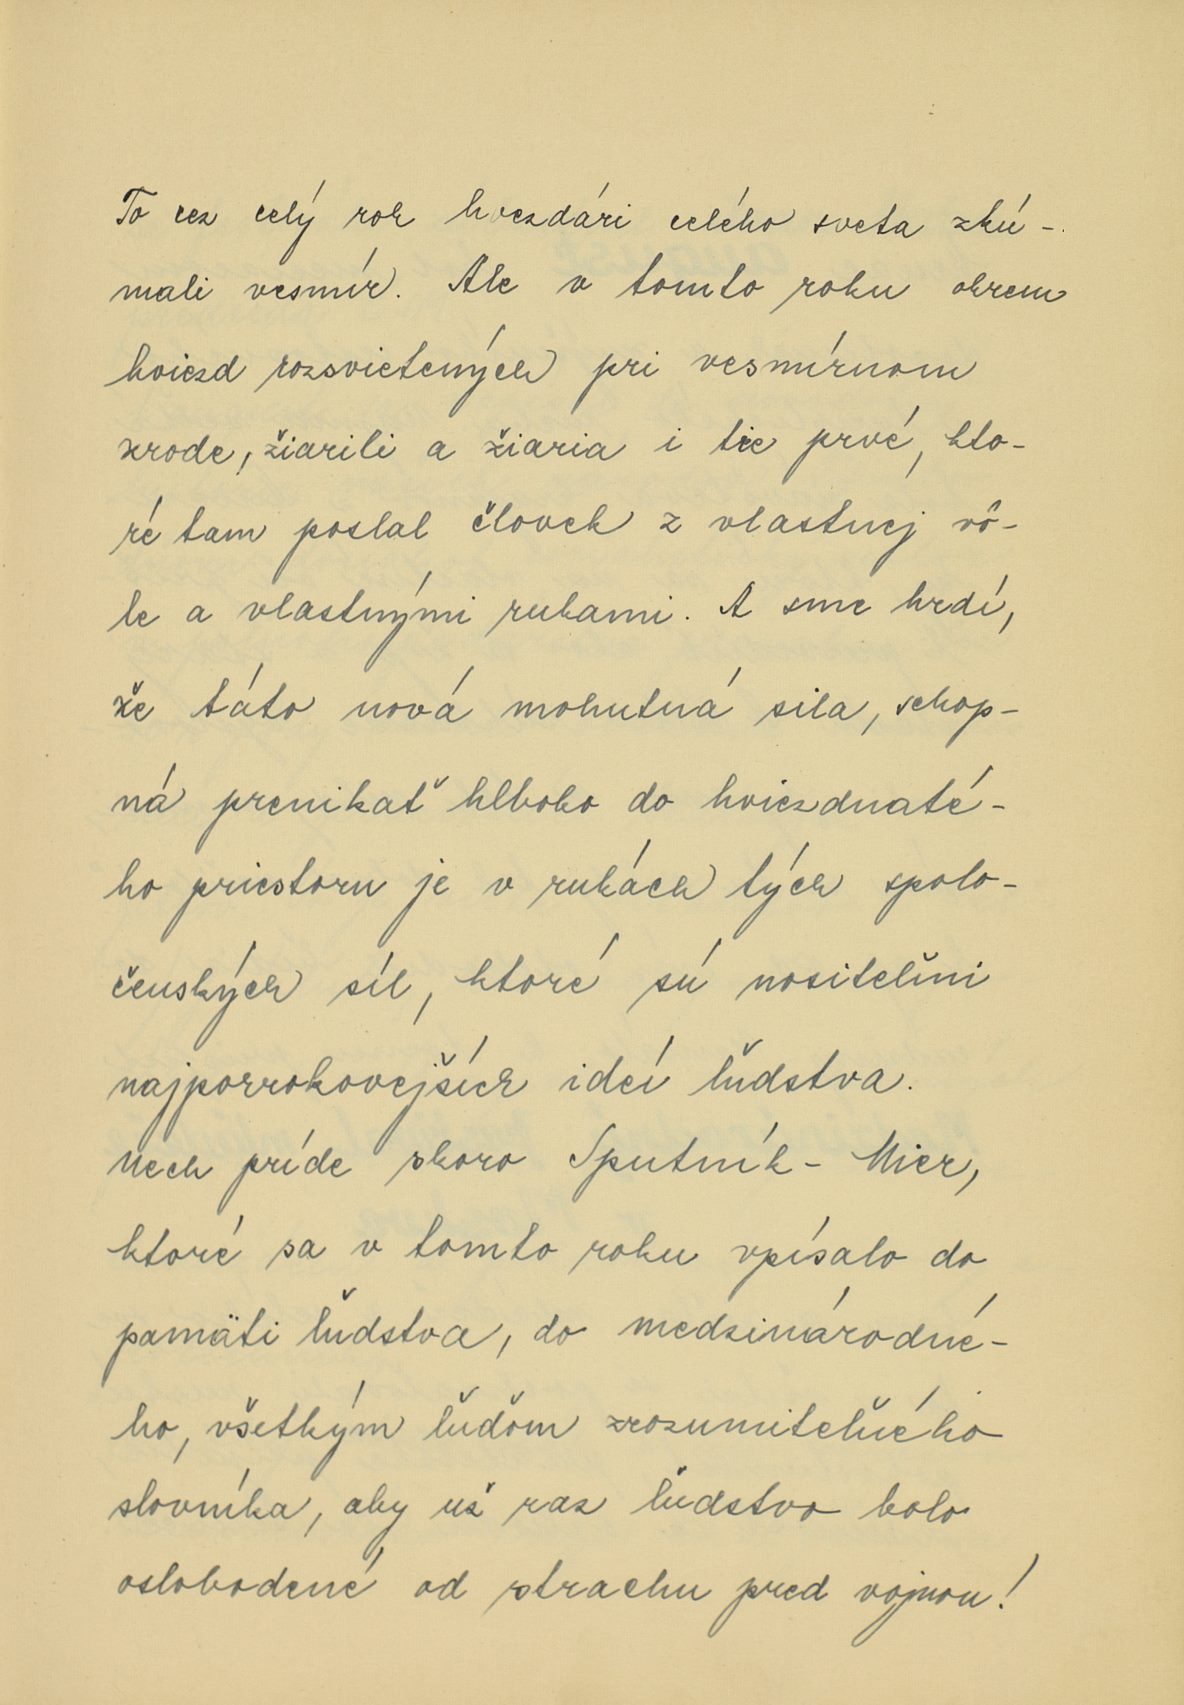 To cez celý rok hvezdári celého sveta zkú-
mali vesmír. Ale v tomto roku okrem
hviezd rozsvietených pri vesmírnom
zrode, žiarili a žiaria i tie prvé, kto-
ré tam poslal človek z vlastnej vô-
le a vlastnými rukami. A sme hrdí,
že táto nová mohutná sila, schop-
ná prenikať hlboko do hviezdnaté-
ho priestoru je v rukách tých spolo-
čenských síl, ktoré sú nositeľmi
najporrokovejších ideí ľudstva.
Nech príde skoro Sputník - Mier,
ktoré sa v tomto roku vpísalo do
pamäti ľudstva, do medzinárodné-
ho, všetkým ľuďom zrozumiteľného
slovníka, aby už raz ľudstvo bolo
oslobodené od strachu pred vojnou!